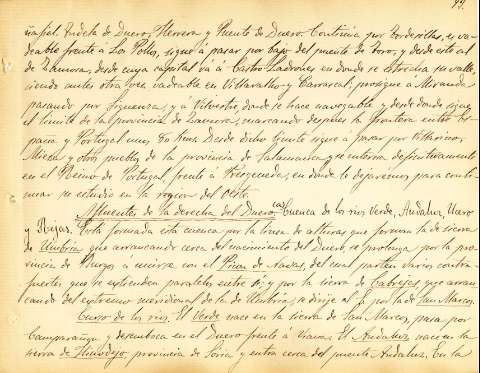 ñafiel, Tudela de Duero, Herrera y Puente de Duero. Continúa por Tordesillas, es va-
deable frente á Los Pollos, sigue á pasar por bajo del puente de Toro, y desde este al
de Zamora, desde cuya capital vá á Castro Ladrones en donde se estrecha su valle,
siendo antes otra vez vadeable en Villaralbo y Carrascal; prosigue á Miranda
pasando por y á Vilvestre, donde se hace navegable y desde donde sigue
el límite de la provincia de Zamora, marcando despues la frontera entre Es-
paña y Portugal unos Kms. Desde dicho límite sigue á pasar por Villarino,
Mieza y otros pueblos de la provincia de Salamanca y se interna definitivamente
en el Reino de Portugal, frente á Fregeneda, en donde le dejaremos para conti-
nuar su estudio en la region del Oeste.
Afluentes de la derecha del Duero. (a) Cuenca de los rios Verde, Andaluz, Ucero
y Rejas. Está formada esta cuenca por la línea de alturas que forman la de sierra
de Umbría que arrancando cerca del nacimiento del Duero, se prolonga por la pro-
vincia de Burgos á unirse con el Pico de Navas, del cual parten varios contra-
fuertes que se extienden paralelos entre sí; y por la sierra de Cabrejas, que arran-
cando del extremo meridional de la de Umbría, se dirige al por la de San Marcos.
Curso de los rios. El Verde nace en la sierra de San Marcos, pasa por
y desemboca en el Duero frente á El Andaluz nace en la
sierra de Hinodejo, provincia de Soria y entra cerca del puente Andaluz. En la